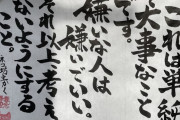 これは単純
大事なこと
です。
嫌いな人は
嫌いでいい。
それ以上考え
ないようにする
こと。